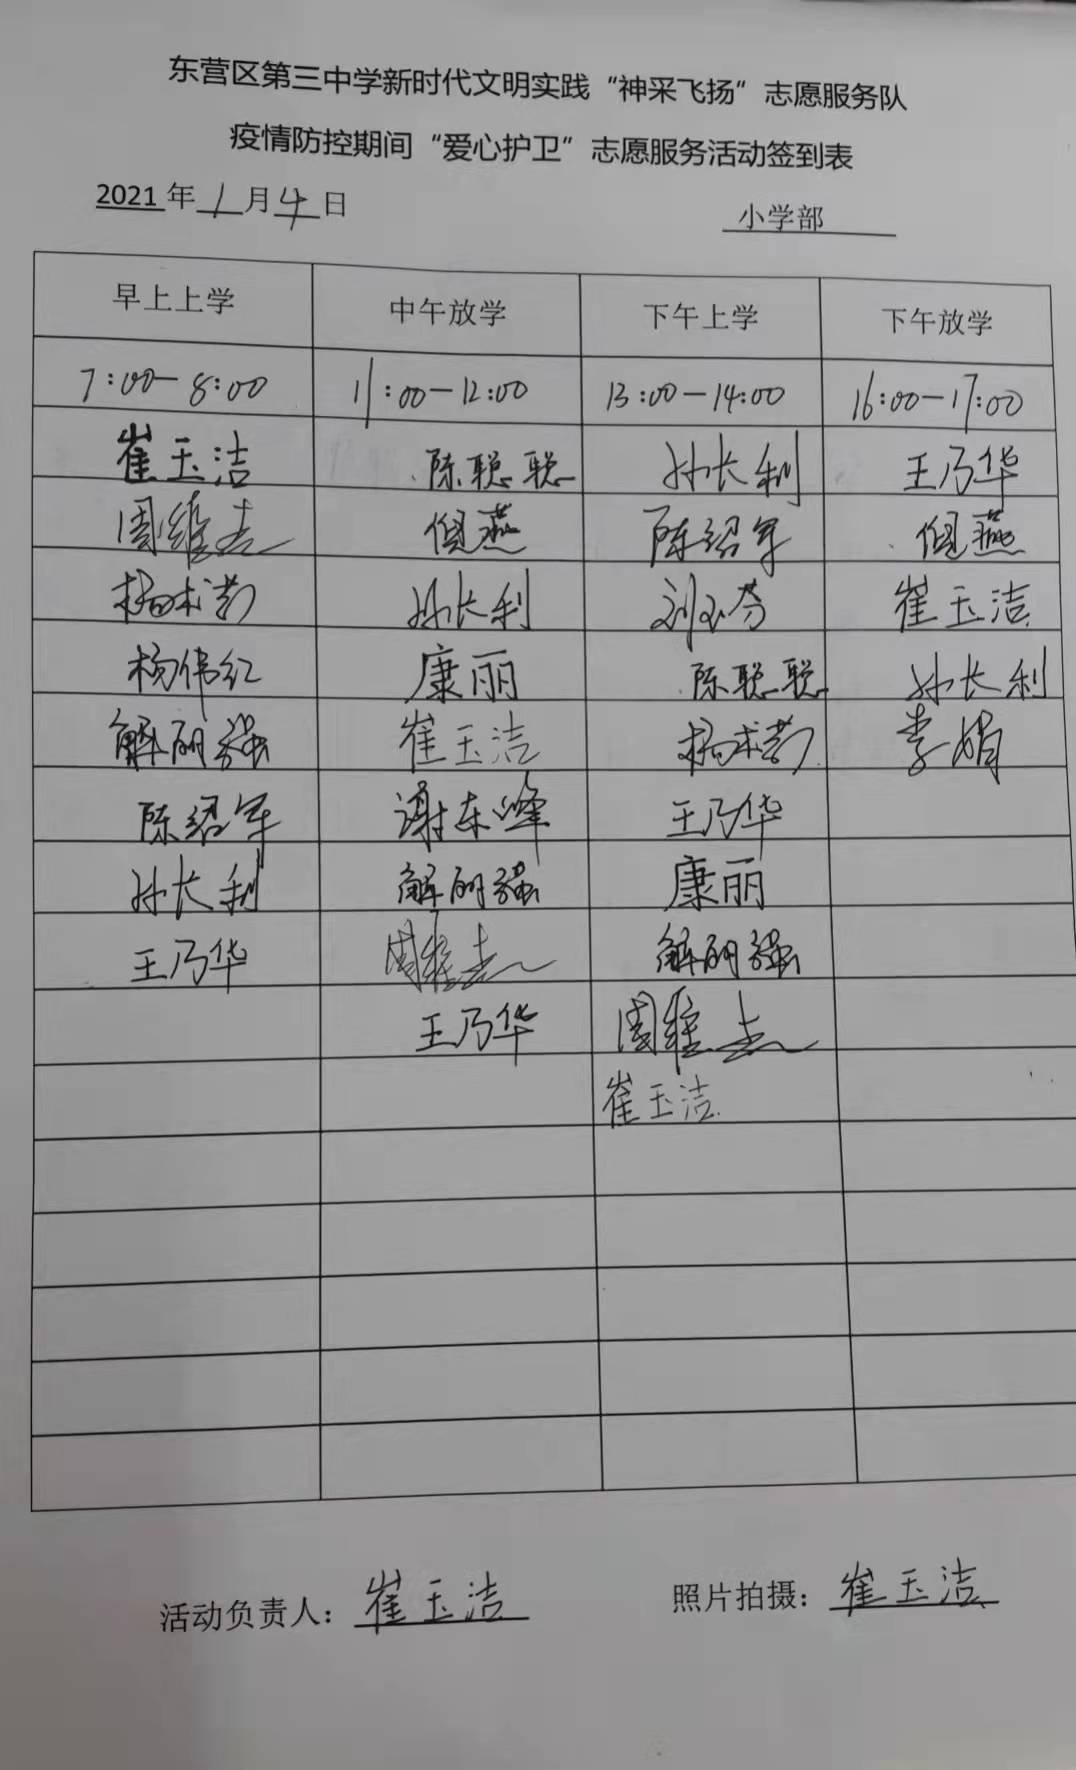 东营区第三中学新时代文明实践“神采飞扬”志愿服务队
疫情防控期间“爱心护卫”志愿服务活动签到表
2021年1月4日 小学部
早上上学 中午放学 下午上学 下午放学
7:00-8:00 11:00-12:00 13:00-14:00 16:00-17:00
崔玉洁 陈聪聪 孙长利 王乃华
周维志 倪燕 陈绍军 倪燕
杨术芳 孙长利 刘玉芬 崔玉洁
杨伟红 康丽 陈聪聪 孙长利
解明强 崔玉洁 杨术芳 李娟
陈绍军 谢东峰 王乃华
孙长利 解明强 康丽
王乃华 周维志 解明强
王乃华 周维志
崔玉洁
活动负责人：崔玉洁 照片拍摄：崔玉洁